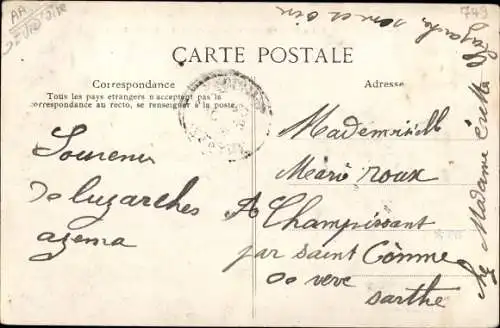 749
CARTE POSTALE
Correspondance
Tous les pays étrangers n'acceptent pas la
correspondance au recto, se renseigner à la poste.
Adresse
Souvenir
De luzarches
azema
Mademoisell
Méarie roux
A Champissant
par saint Cômme
De vere
sarthe
Chez Madame